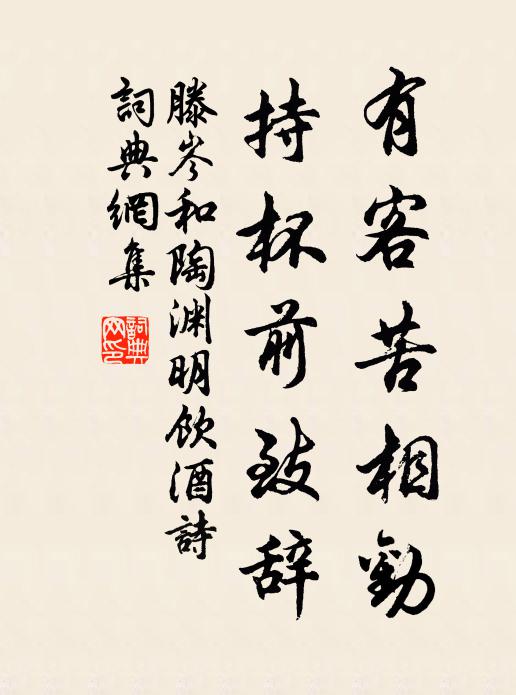 有客苦相勸
持杯前致辞
滕岑和陶淵明飲酒詩
詞典網集
詞典网印